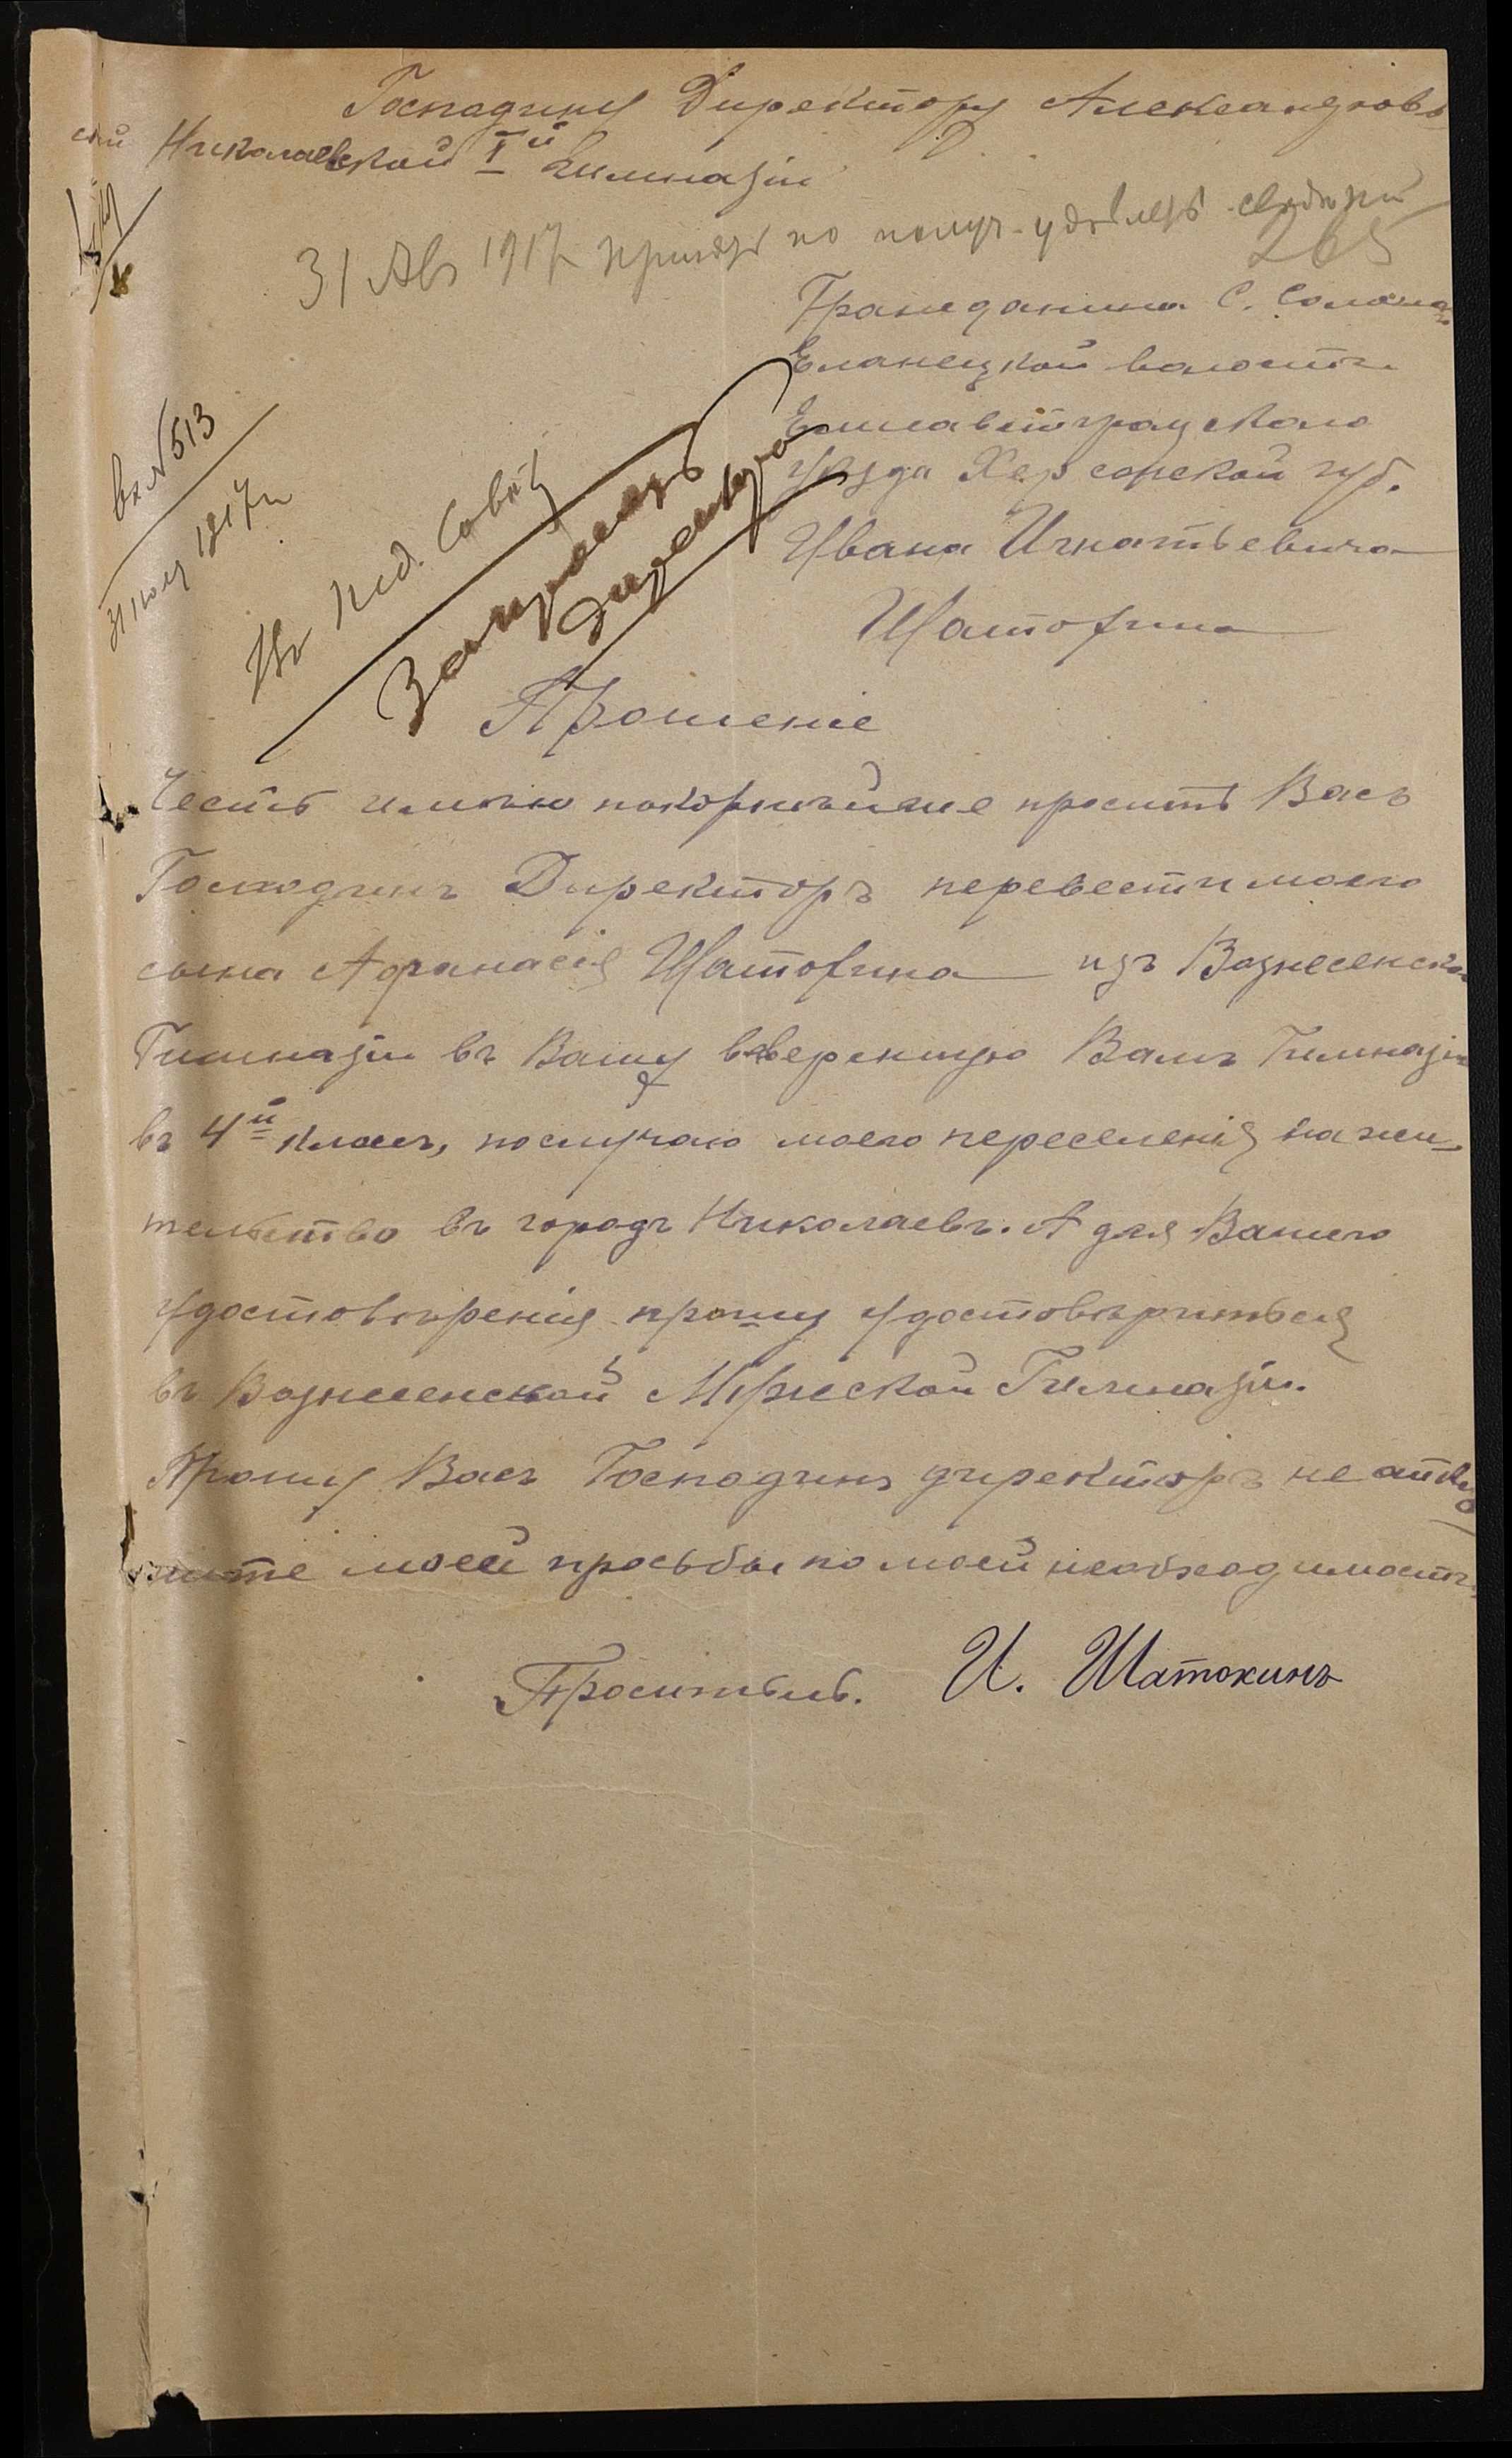 Господину Директору Александров-
ской Николаевской Iй Гимназіи
31 Авг 1917 по получ. удовлет. сведений
265
Гражданина С.
Еланецкой валости
Елисаветоградскаго
Уѣзда Херсонской губ.
Ивана Игнатьевича
Шатохина
вх №513
31 1917 г
Въ Пед. Совѣтъ
Запросить
директора
Прошеніе
Честь имѣю покорнѣйше просить Васъ
Господинъ Директоръ перевести моего
сына Афанасія Шатохина изъ Вознесенской
Гимназіи въ Вашу ввверенную Вамъ Гимназію
въ 4й класъ, послучаю моего переселенія на жи-
тельство въ городъ Николаевъ. А для Вашего
удостовѣренія прошу удостовѣриться
въ Вознесенской Мужеской Гимназіи.
Прошу Васъ Господинъ директоръ не
моей просьбы по моей необходимости
Проситель. И. Шатохинъ